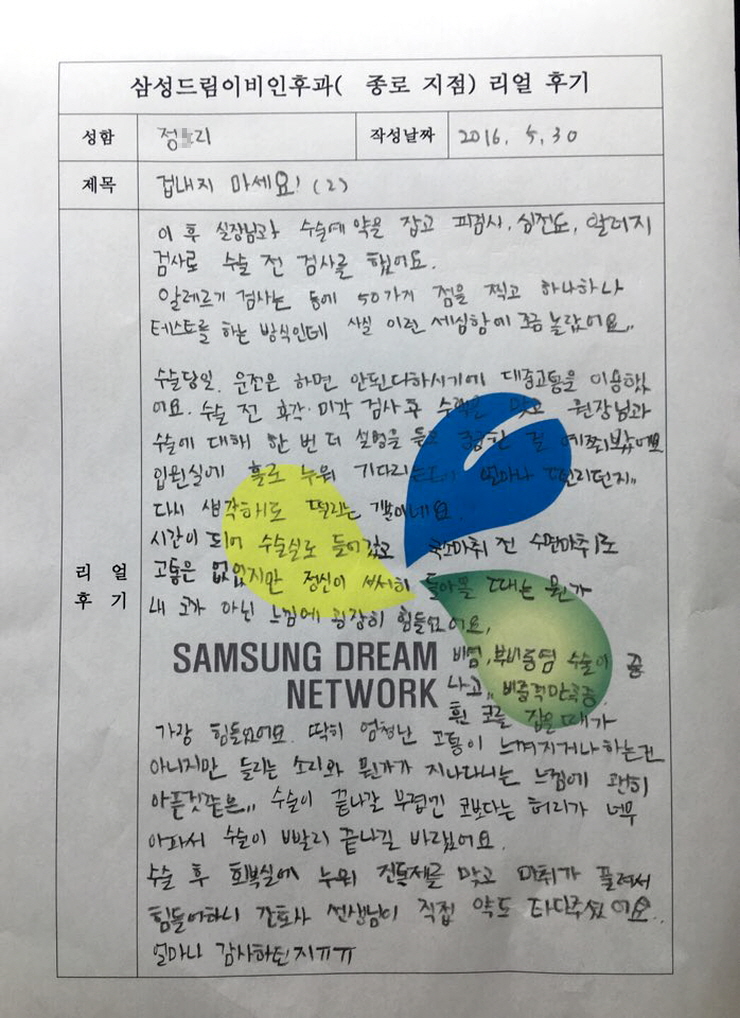 삼성드림이비인후과( 종로 지점) 리얼 후기
성함 정 리 작성날짜 2016. 5. 30
제목 겁내지 마세요! (2)
리 얼
후 기
이 후 실장님과 수술예약을 잡고 피검사, 심전도, 알러지
검사로 수술 전 검사를 했어요.
알레르기 검사는 등에 50가지 점을 찍고 하나하나
테스트를 하는 방식인데 사실 이런 세심함에 조금 놀랐어요..
수술당일. 운전은 하면 안된다하시기에 대중교통을 이용했
어요. 수술 전 후각·미각 검사후 수액을 맞고 원장님과
수술에 대해 한 번 더 설명을 듣고 궁금한 걸 여쭤봤어요
입원실에 홀로 누워 기다리는데 얼마나 떨리던지..
다시 생각해도 떨리는 기분이네요.
시간이 되어 수술실로 들어갔고 국소마취 전 수면마취로
고통은 없었지만 정신이 서서히 돌아올 때는 뭔가
내 코가 아닌 느낌에 굉장히 힘들었어요.
SAMSUNG DREAM
NETWORK
비염, 부비동염 수술이 끝
나고.. 비중격만곡증.
휜 코를 잡을 때가
가장 힘들었어요. 딱히 엄청난 고통이 느껴지거나하는건
아니지만 들리는 소리와 뭔가가 지나다니는 느낌에 괜히
아픈것같은.. 수술이 끝나갈 무렵엔 코보다는 허리가 너무
아파서 수술이 빨리 끝나길 바랬어요.
수술 후 회복실에 누워 진통제를 맞고 마취가 풀려서
힘들어하니 간호사 선생님이 직접 약도 타다주셨어요..
얼마나 감사하던지ㅠㅠ